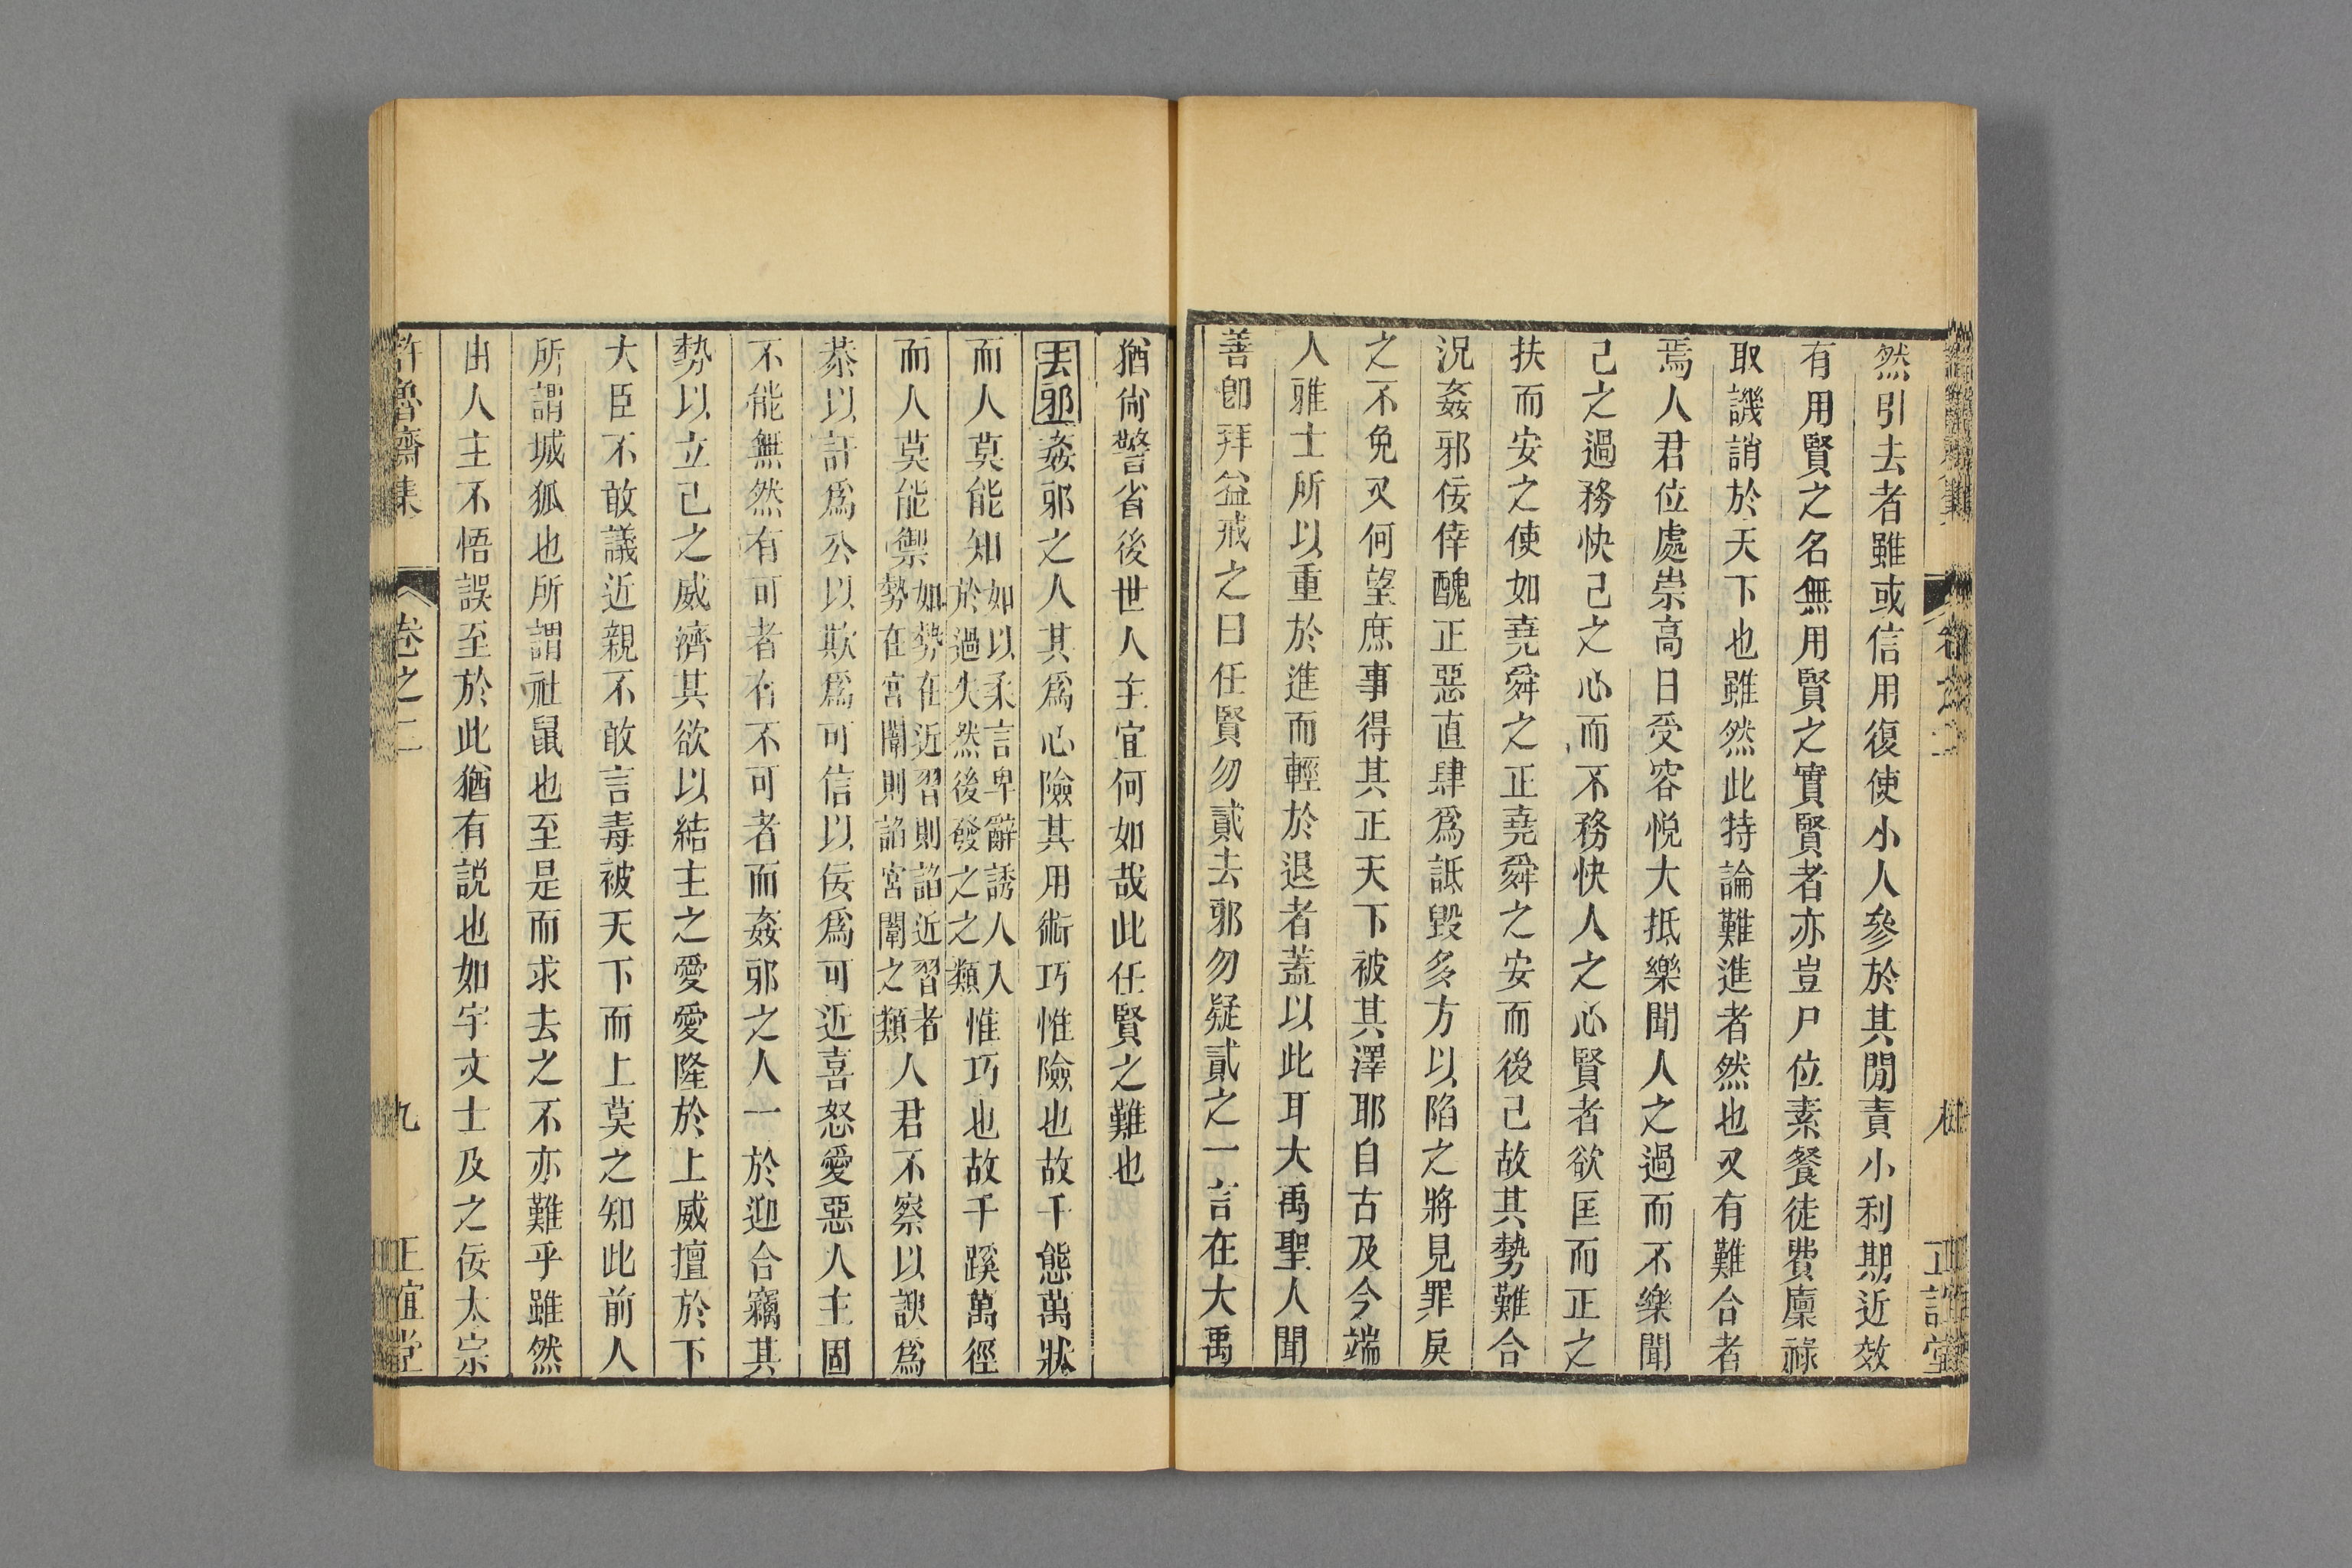 然引去者雖或信用復使小人參於其閒責小利期近效
有用賢之名無用賢之實賢者亦豈尸位素餐徒費廩祿
取譏誚於天下也雖然此特論難進者然也又有難合者
焉人君位處崇高日受容悅大抵樂聞人之過而不樂聞
己之過務快己之心而不務快人之心賢者欲匡而正之
扶而安之使如堯舜之正堯舜之安而後己故其勢難合
況姦邪佞倖醜正惡直肆爲詆毀多方以陷之將見罪戾
之不免又何望庶事得其正天下被其澤耶自古及今端
人雅士所以重於進而輕於退者蓋以此耳大禹聖人聞
善卽拜益戒之曰任賢勿貳去邪勿疑貳之一言在大禹
猶尙警省後世人主宜何如哉此任賢之難也
去邪姦邪之人其爲心險其用術巧惟險也故千態萬狀
而人莫能知如以柔言卑辭誘人入於過失然後發之之類惟巧也故千蹊萬徑
而人莫能禦如勢在近習則諂近習者勢在宮闈則諂宮闈之類人君不察以諛爲
恭以訐爲公以欺爲可信以佞爲可近喜怒愛惡人主固
不能無然有可者有不可者而姦邪之人一於迎合竊其
勢以立己之威濟其欲以結主之愛愛隆於上威擅於下
大臣不敢議近親不敢言毒被天下而上莫之知此前人
所謂城狐也所謂社鼠也至是而求去之不亦難乎雖然
由人主不悟誤至於此猶有說也如宇文士及之佞太宗
許魯齋集 卷之二 九 正誼堂